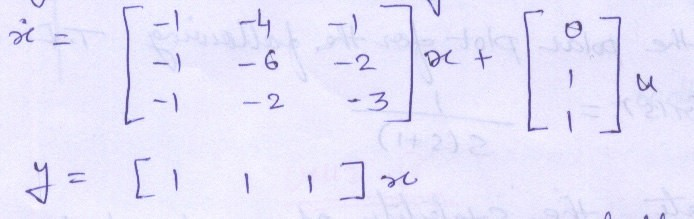 ẋ = [ -1 -4 -1
-1 -6 -2
-1 -2 -3 ] x + [ 0
1
1 ] u
y = [ 1 1 1 ] x